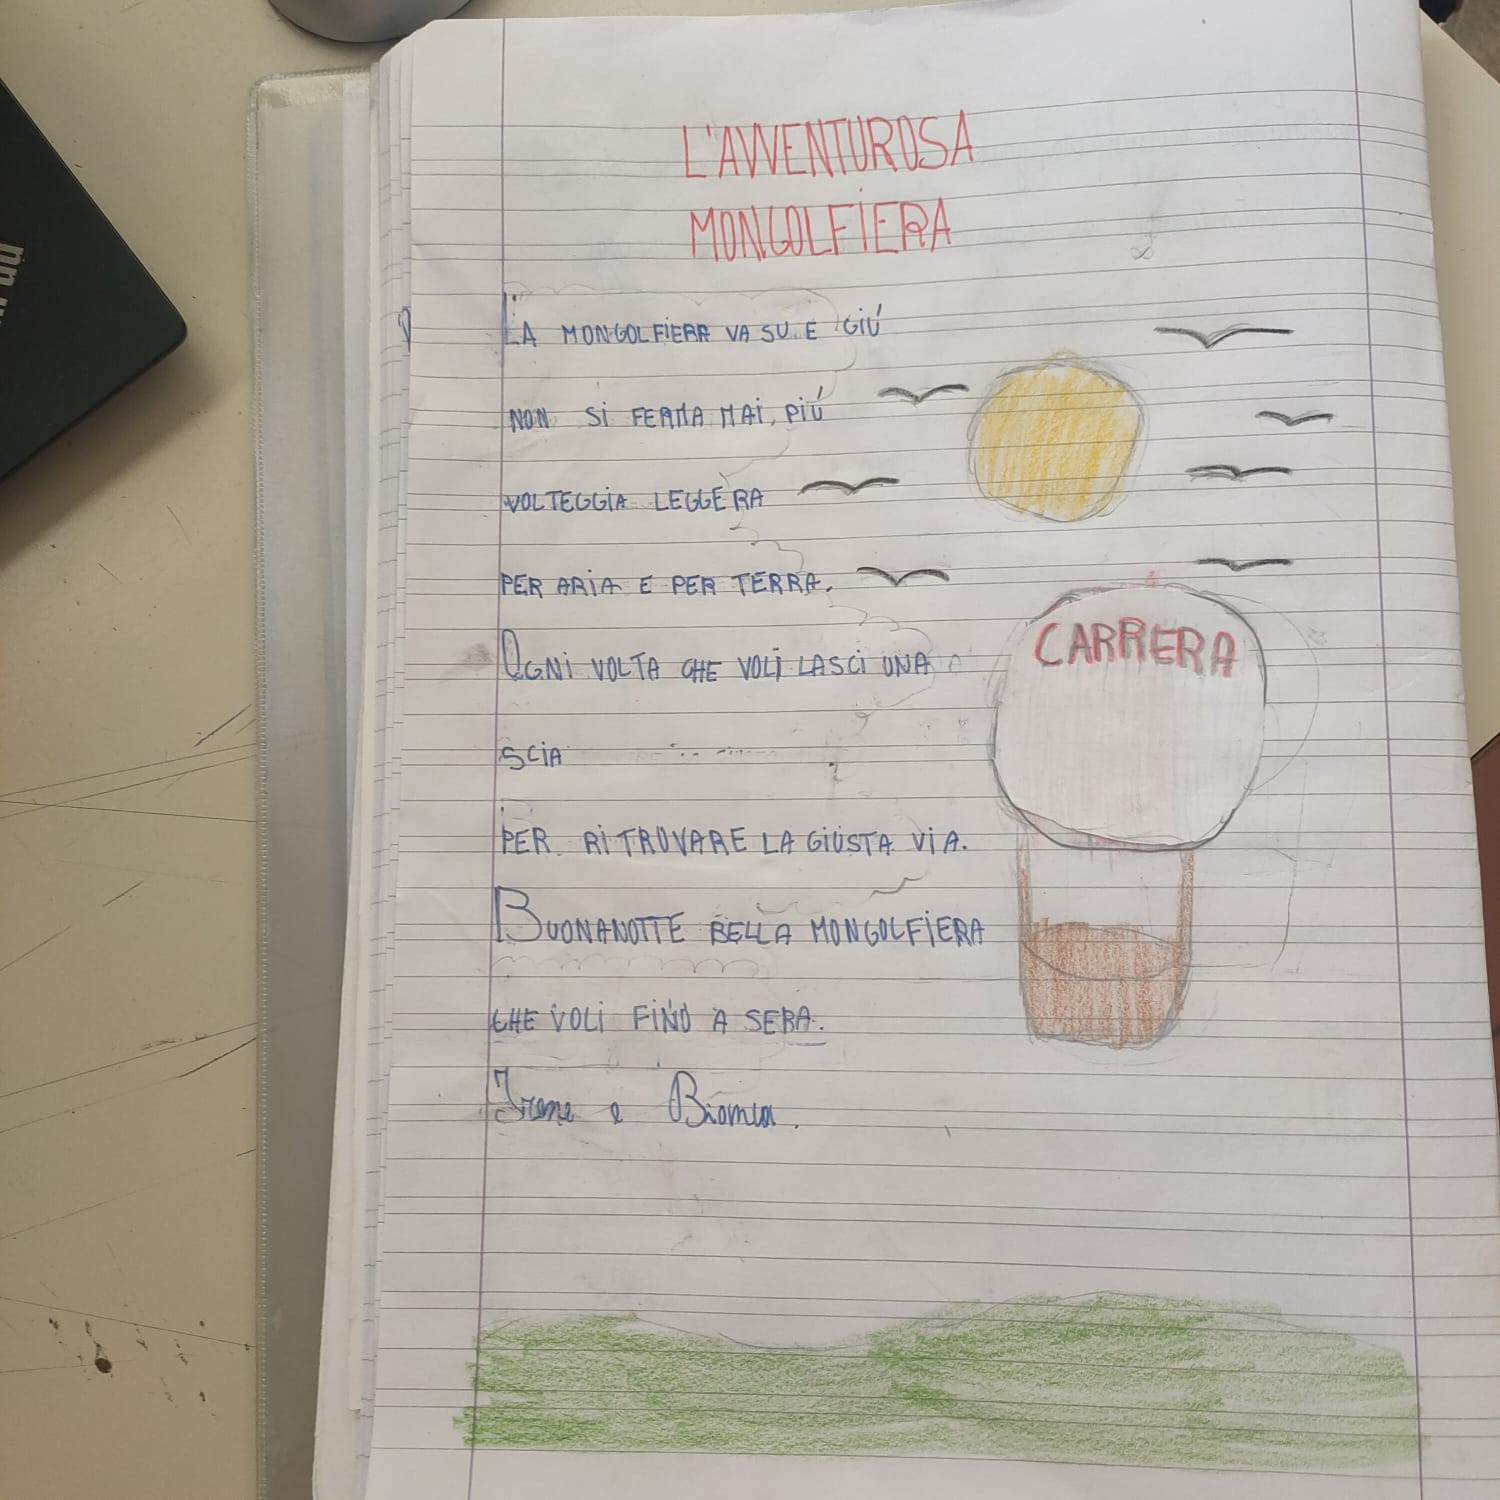 L'AVVENTUROSA
MONGOLFIERA
LA MONGOLFIERA VA SU E GIÚ
NON SI FERMA MAI, PIÚ
VOLTEGGIA LEGGERA
PER ARIA E PER TERRA.
OGNI VOLTA CHE VOLI LASCI UNA
SCIA
PER RITROVARE LA GIUSTA VIA.
BUONANOTTE BELLA MONGOLFIERA
CHE VOLI FINO A SERA.
Irene e Bianca.
CARRERA